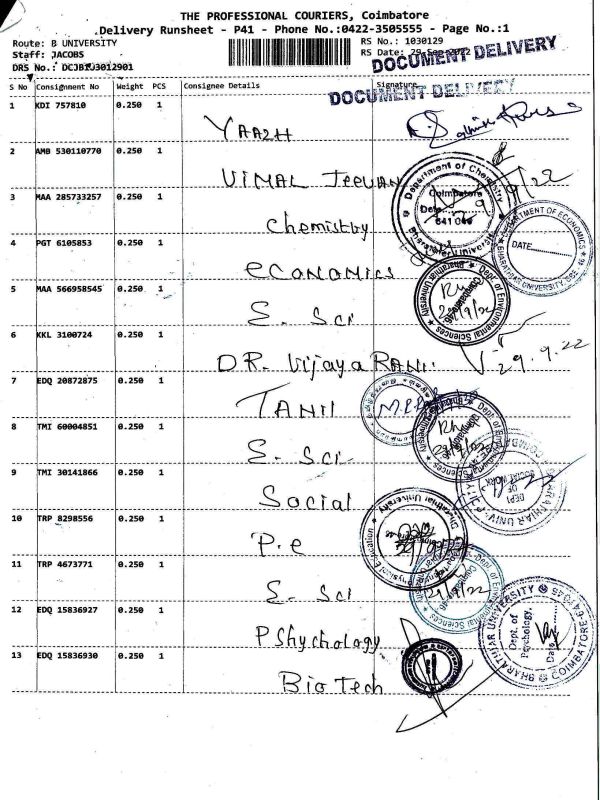 THE PROFESSIONAL COURIERS, Coimbatore
Delivery Runsheet - P41 - Phone No.:0422-3505555 - Page No.:1
Route: B UNIVERSITY
RS No.: 1030129
Staff: JACOBS
RS Date: 29-Sep-2022
DRS No.: DCJB193012901
DOCUMENT DELIVERY
DOCUMENT DELIVERY
S No Consignment No Weight PCS Consignee Details Signature
1 KDI 757810 0.250 1 YAAZH
2 AMB 530110770 0.250 1 VIMAL JEEVAN
3 MAA 285733257 0.250 1 Chemistry
4 PGT 6105853 0.250 1 ECONOMICS
5 MAA 566958545 0.250 1 E. Sci
6 KKL 3100724 0.250 1 DR. Vijaya RANI 29.9.22
7 EDQ 20872875 0.250 1 TAMIL
8 TMI 60004851 0.250 1 E. Sci
9 TMI 30141866 0.250 1 Social
10 TRP 8298556 0.250 1 P.e
11 TRP 4673771 0.250 1 E. Sci
12 EDQ 15836927 0.250 1 PShychology
13 EDQ 15836930 0.250 1 BioTech
Department of Chemistry
Coimbatore
Date
641 046
Bharathiar University
DEPARTMENT OF ECONOMICS
DATE
BHARATHIAR UNIVERSITY, CBE - 46
Dept. of Environmental Sciences
Bharathiar University
DEPT. OF SOCIAL WORK
Physical Education
Bharathiar University
BHARATHIAR UNIVERSITY
Dept. of
Psychology,
Date
COIMBATORE